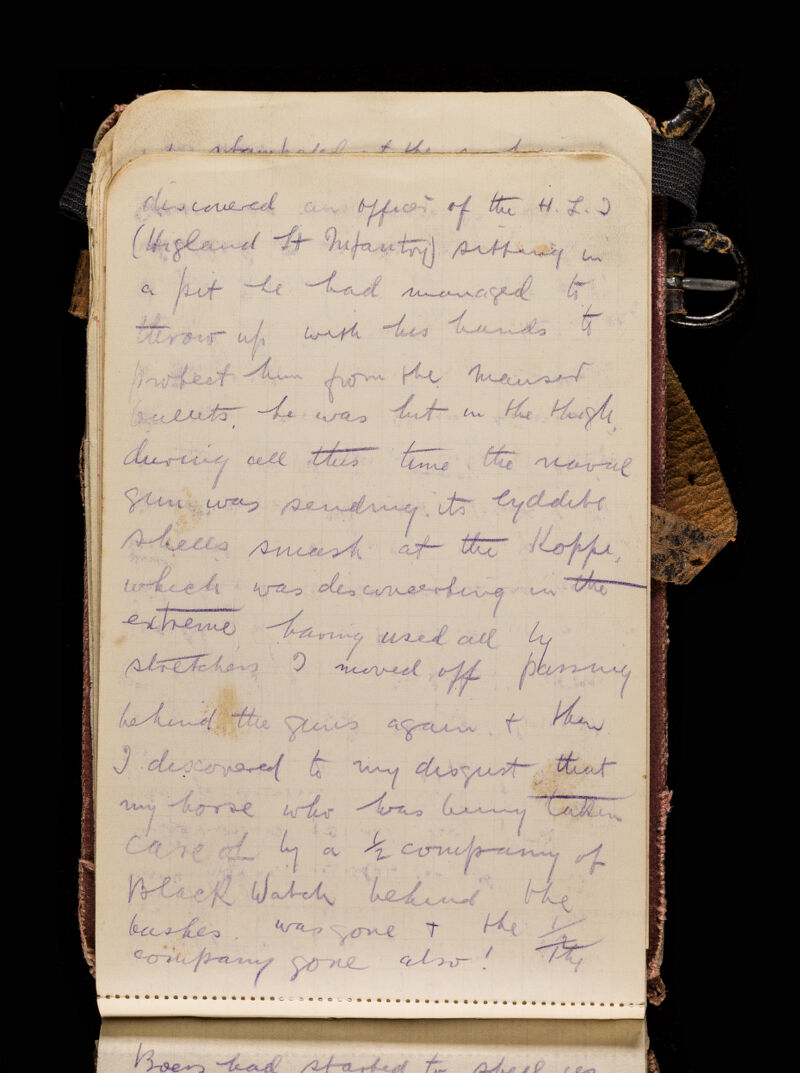 discovered an officer of the H. L. I
(Higland Lt Infantry) sitting in
a pit he had managed to
throw up with his hands to
protect him from the mauser
bullets. he was hit in the thigh.
during all this time the naval
gun was sending its lyddite
shells smash at the Koppe,
which was disconcerting in the
extreme, having used all my
stretchers I moved off passing
behind the guns again & then
I discovered to my disgust that
my horse who was being taken
care of by a ½ company of
Black Watch behind the
bushes. was gone & the ½
company gone also! The
Boers had started to shell us